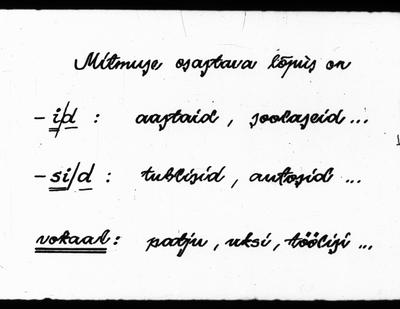 Mitmuse osastava lõpuks on
- i/d : aastaid, soolaseid ...
- si/d : tublisid, autosid ...
vokaal : patju, uksi, töölisi ...